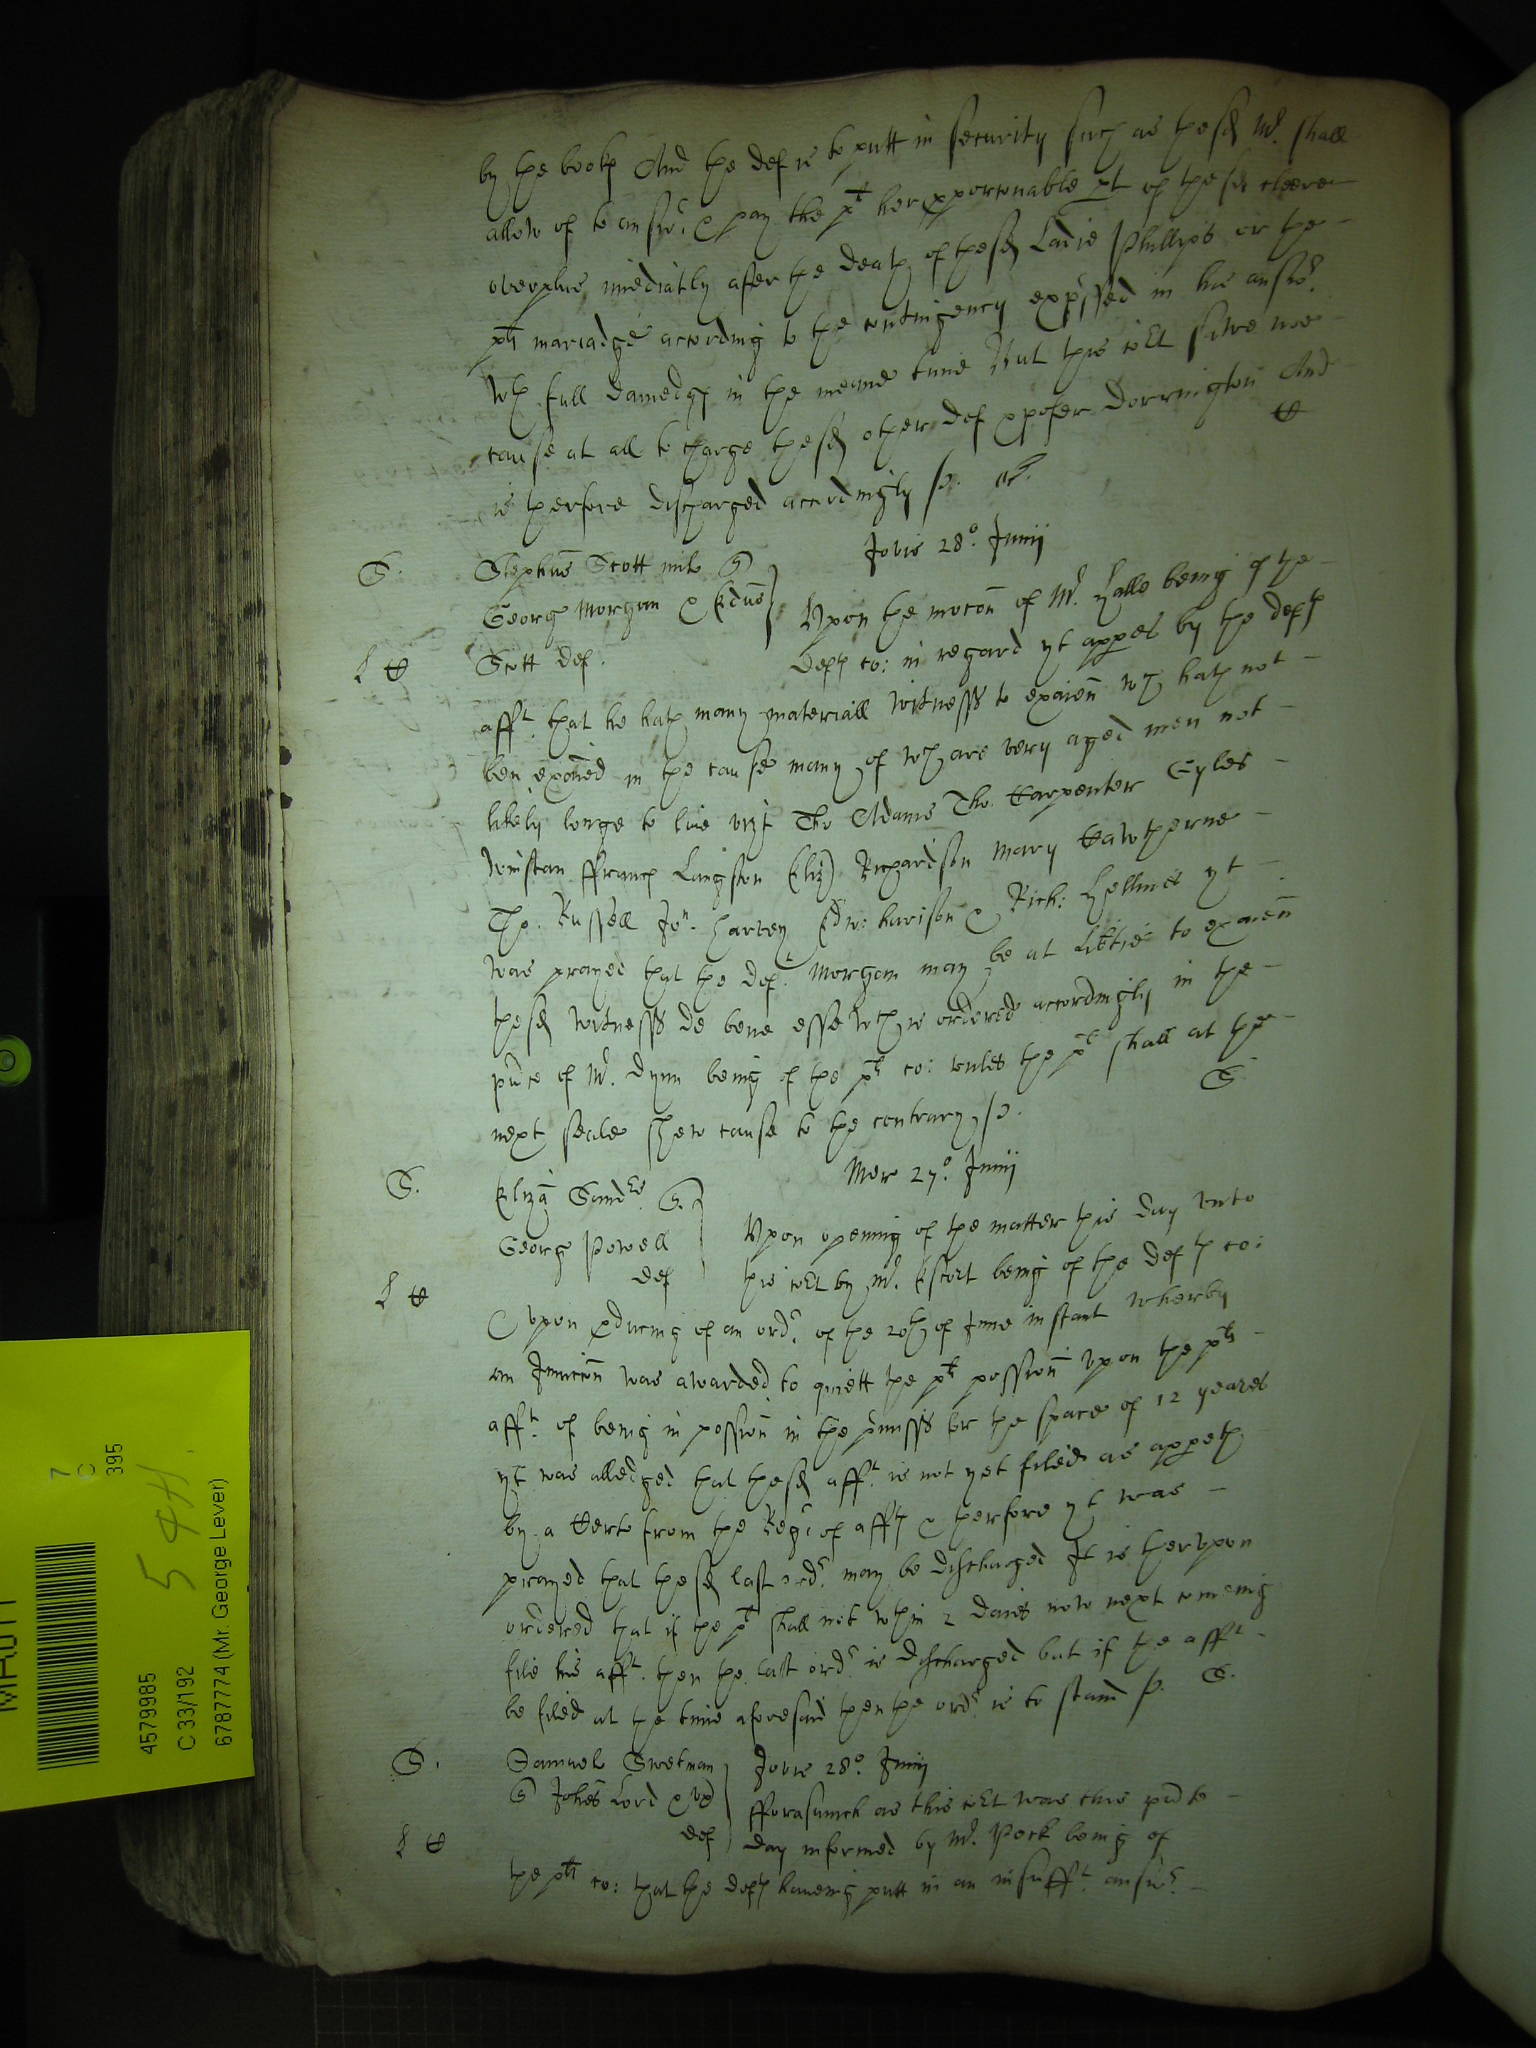 by the booke And the def is to putt in security such as the sd Mr. shall
allow of to answ: & pay the plt her pporconable pt of the sd cleere
overplus imediatly after the death of the sd Ladie Phillips or the
plts mariadge according to the contingency expssed in his answr.
wth full damedgs in the meane time But this Cot sawe noe
cause at all to charge the sd other def Xpofer Dorrington And
is therfore discharged accordingly
Jovis 28o. Junij
S.
Stephus Scott mil
Georg Morgan & Edus
Scott def.
Upon the mocon of Mr. Halle being of the
defts co: in regard yt appes by the defts
afft. that he hath many materiall witnesss to examn wch hath not
ben examed in the cause many of wch are very aged men not
likely longe to live vizt Tho Adams Tho. Carpenter Gyles
Winstan ffranc Langston Eliz Richardson Mary Hawthorne
Tho. Russell Jon. Harvey Edw: harison & Rich: Hellmes yt
was prayed that the deft. Morgan may be at libtie to examn
the sd witnesss de bene esse wch is ordered accordingly in the
pnce of Mr. Dynn being of the plts co: unles the plt shall at the
next seale shew cause to the contrary
S.
Mer 27o. Junij
S.
Eliza Sands.
Georg Powell
def
Upon opening of the matter this day unto
this Cot by Mr. Escort being of the defts co:
& upon pducing of an ordr. of the 20th of June instant wherby
an Injuncon was awarded to quiett the plts possion upon the plts
afft. of being in possion in the pmisss for the space of 12 yeares
yt was alledged that the sd afft. is not yet filed as appeth
by a Certe from the Regr of affts & therfore yt was
prayed that the sd last ordr. may be discharged It is therupon
ordered that if the plt shall not wthin 2 daies now next comeing
file his afft. then the last ordr. is discharged but if the afft
be filed at the time aforesaid then the ordr is to stand
S.
S.
Samuel Swetman
Johes Lord & ux
def
Jovis 28o. Junij
fforasmuch as this Cot was this pnte
day informed by Mr. Peck being of
the plts co: that the defts haveing putt in an insufft. answr.
7
C
395
54H
4579985
C 33/192
6787774 (Mr. George Lever)